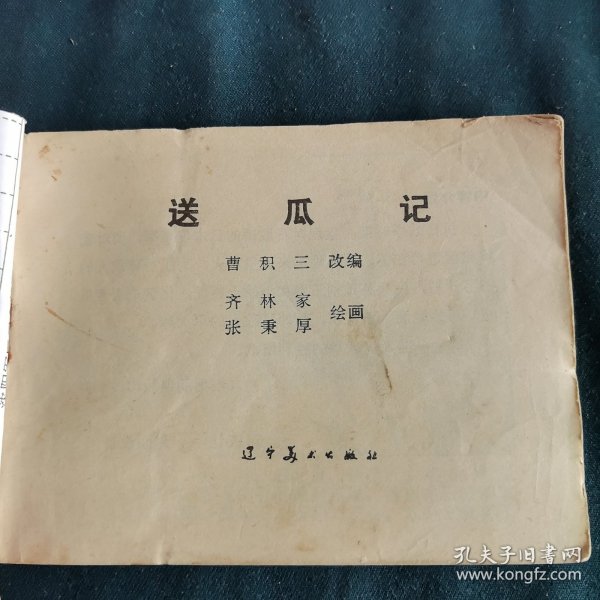 送瓜记
曹积三 改编
齐林家
张秉厚 绘画
辽宁美术出版社
孔夫子旧书网
www.kongfz.com